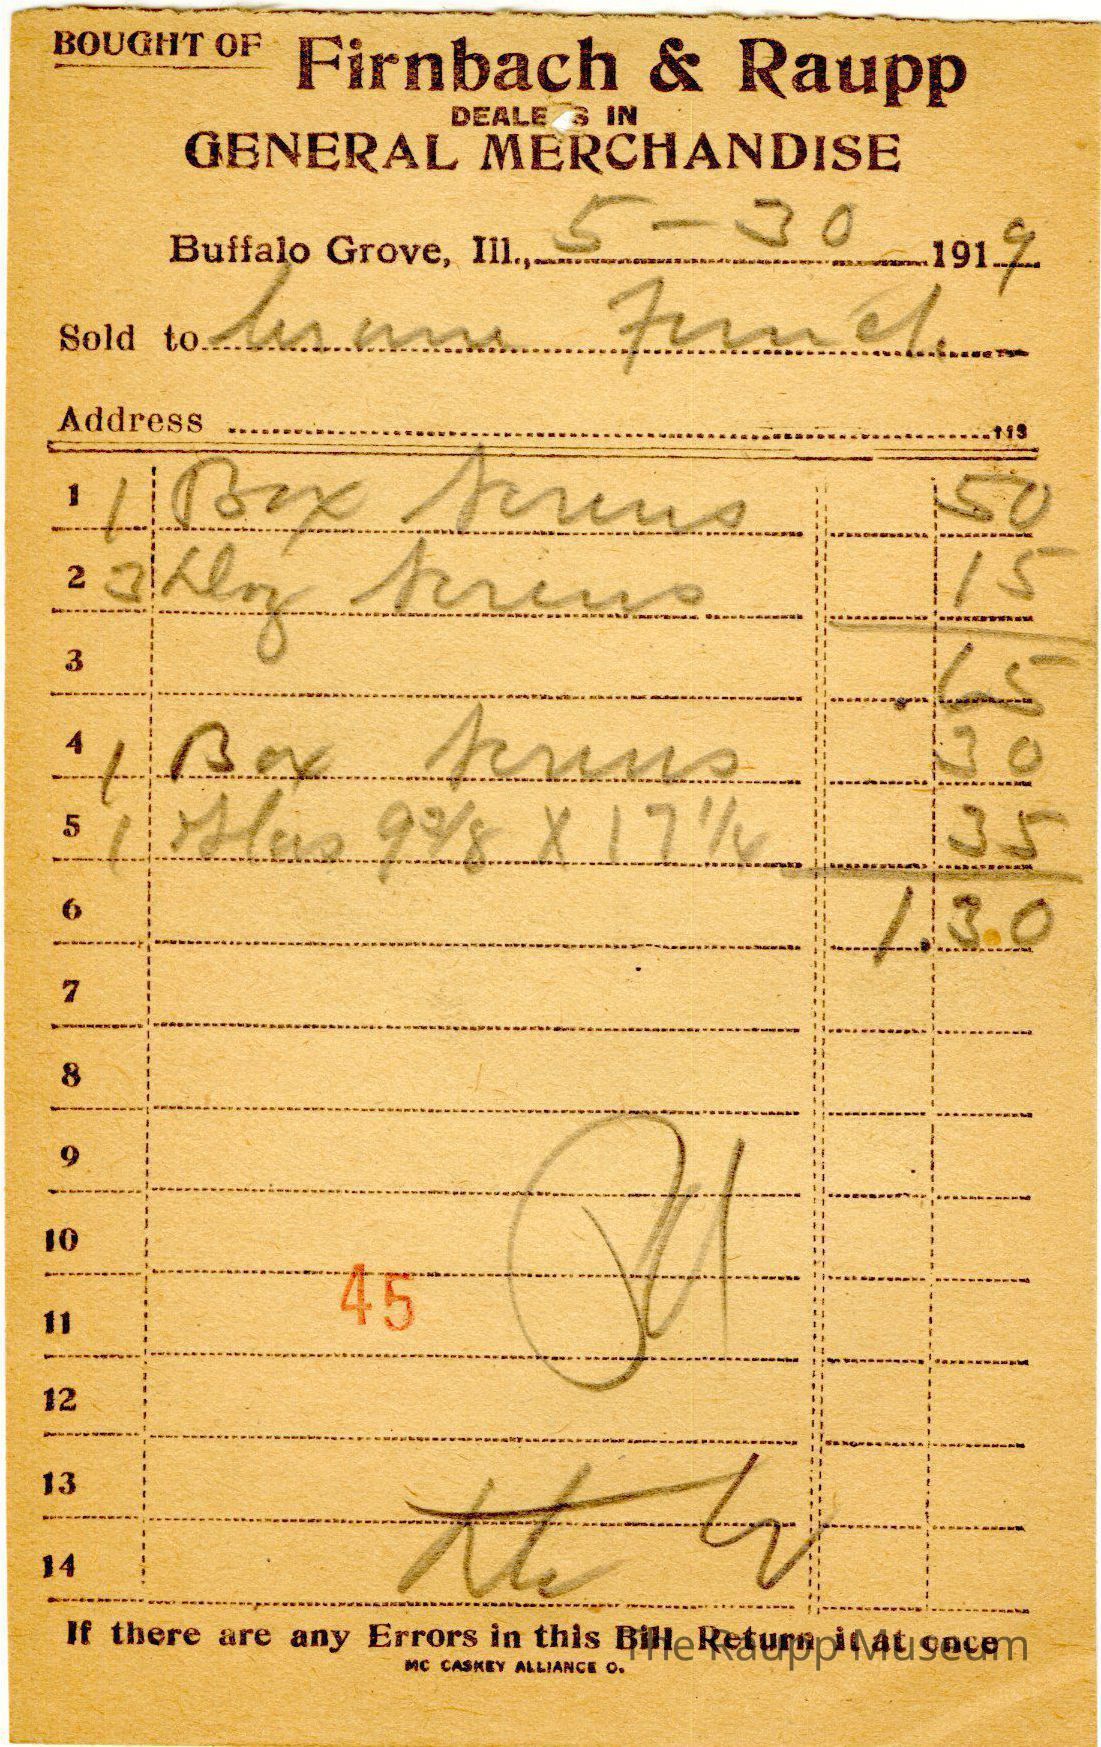 BOUGHT OF Firnbach & Raupp
DEALERS IN
GENERAL MERCHANDISE
Buffalo Grove, Ill., 5-30 1919
Sold to
Address 113
1 1 Box Screws 50
2 3 Doz Screws 15
3 .65
4 1 Box Screws 30
5 1 Glass 9 3/8 X 17 1/4 35
6 1.30
7
8
9
10
45
11
12
13
14
If there are any Errors in this Bill Return it at once
The Raupp Museum
MC CASKEY ALLIANCE O.